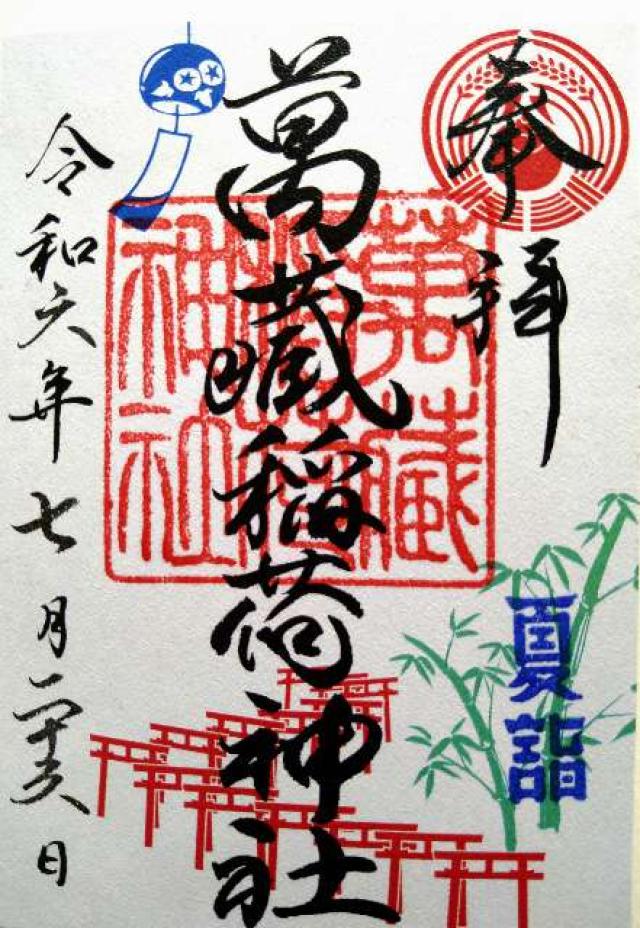 奉拝
夏詣
萬藏稲荷神社
萬藏
稲荷
神社
令和六年七月二十六日